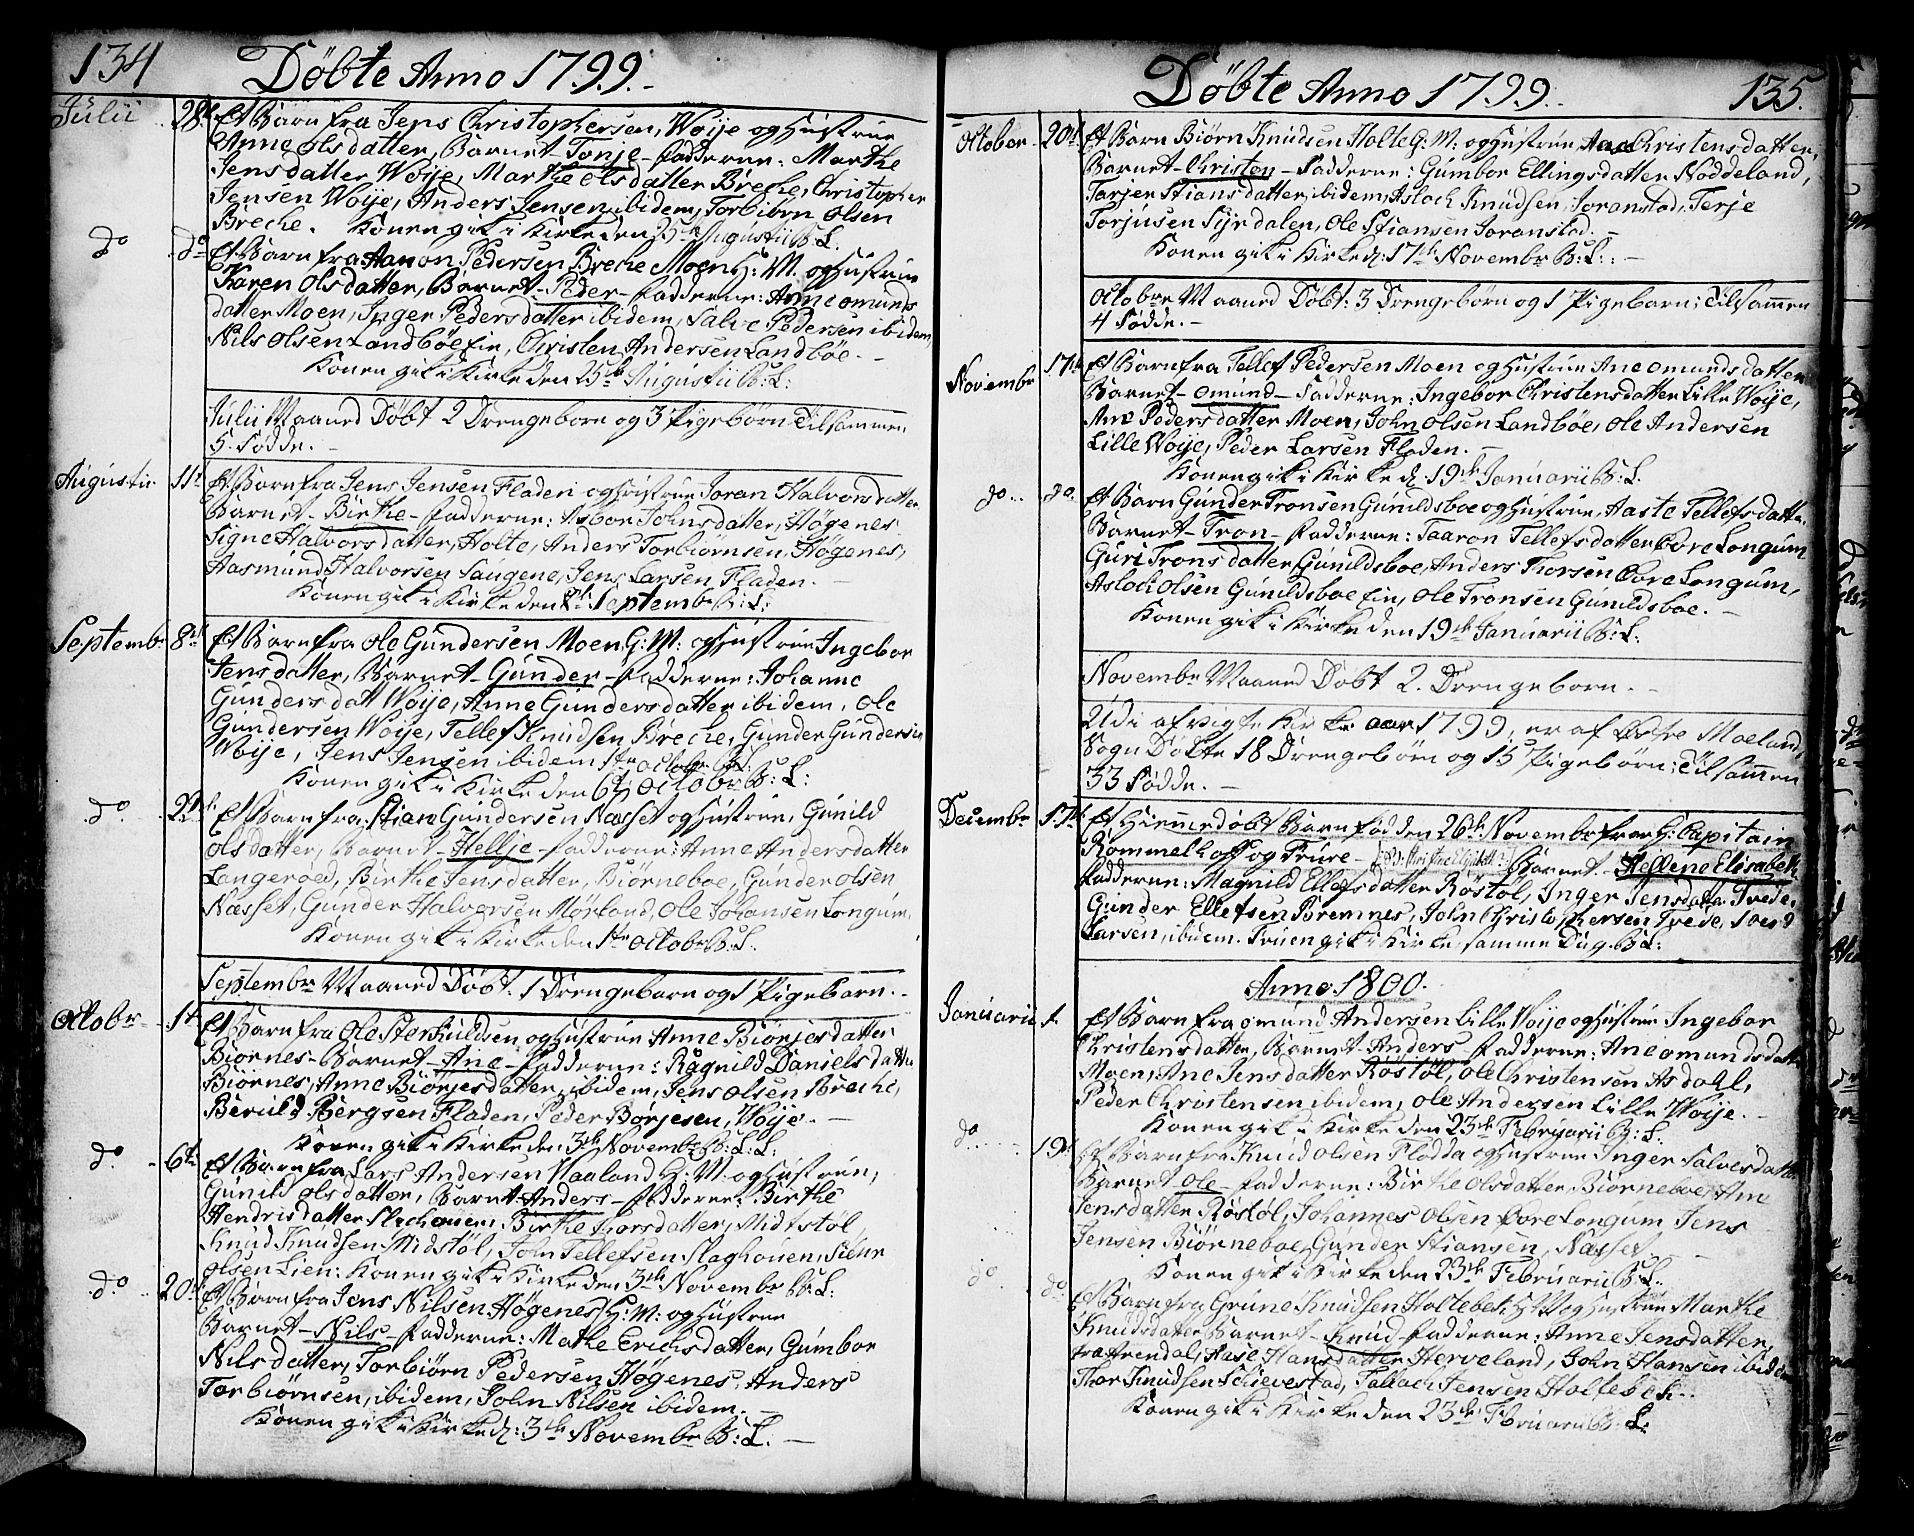 134 Döbte Anno 1799.
Julii 28de Et Barn fra Jens Christophersen, Woije og Hustrue
Anne Olsdatter, Barnet Tonje Fadderne: Marthe
Jensdatter Woije, Marthe Olsdatter Breche, Christopher
Jensen Woije, Anders Jensen ibidem, Torbiörn Olsen
Breche. Konen gik i Kirke den 25de Augustii B: L.
do do Et Barn fra Aanon Pedersen Breche Moen H: M. og Hustrue
Karen Olsdatter, Barnet Peder Fadderne: Anne Omunds
datter Moen, Inger Pedersdatter ibidem, Salve Pedersen ibidem,
Nils Olsen Landböe Ein, Christen Andersen Landböe.
Konen gik i Kirke den 25de Augustii B: L:
Julii Maaned Döbt 2 Drengebörn og 3 Pigebörn Tilsammen
5 Födde.
Augustii 11te Et Barn fra Jens Jensen Fladen og Hustrue Joran Halvorsdatter
Barnet Birthe Fadderne: Asbor Johnsdatter, Högenes
Signe Halvorsdatter, Holte, Anders Torbiörnsen, Högenes,
Aasmund Halvorsen Saugene, Jens Larsen Fladen.
Konen gik i Kirke den Septembr B: L:
Septembr 8de Et Barn fra Ole Gundersen Moen G: M: og Hustrue Ingebor
Jensdatter, Barnet Gunder Fadderne: Johanne
Gundersdatt Woije, Anne Gundersdatter ibidem, Ole
Gundersen Woije, Tellef Knudsen Breche, Gunder Gundersen
Woije, Jens Jensen ibidem
Konen gik i Kirke den 6te Octobr B: L:
do 22de Et Barn fra Stian Gundersen Næsset og Hustrue, Gunild
Olsdatter, Barnet Hellje Fadderne: Anne Andersdatter
Langeroed, Birthe Jensdatter, Biörneboe, Gunder Olsen
Næsset, Gunder Halvorsen Mörland, Ole Johansen Longum,
Konen gik i Kirke den 1te Octobr B: L.
Septembr Maaned Döbt 1 Drengebarn og 1 Pigebarn.
Octobr 1te Et Barn fra Ole Sterkuldsen og Hustrue Anne Biörjesdatter
Biörnes Barnet Ane Fadderne: Ragnild Danielsdatter
Biörnes, Anne Biörjesdatter, ibidem, Jens Olsen Breche,
Beruld Bergsen Fladen, Peder Borjesen, Woije.
Konen gik i Kirke den 3de Novembr B: L:
do 6te Et Barn fra Lars Andersen Haaland H: M: og Hustrue,
Gunild Olsdatter, Barnet Anders Fadderne: Birthe
Hendrisdatter Birthe Torsdatter, Midtstöl
Knud Knudsen Midstöl, John Tellefsen Slaghouen,
Olsen Lien: Konen gik i Kirke den 3de Novembr B: L:
do 20de Et Barn fra Jens Nilsen Högenes H: M: og Hustrue
Barnet Nils Fadderne: Mathe Erichsdatter, Gumbor
Nilsdatter, Torbiörn Pedersen Högenes, Anders
Torbiörnsen, ibidem, John Nilsen ibidem.
Konen gik i Kirke d: 3de Novembr B: L:
Döbte Anno 1799. 135.
Octobr 20de Et Barn Biörn Knudsen Holte G: M: og Hustrue Aase Christensdatter,
Barnet Christen Fadderne: Gumbor Ellingsdatter Noddeland,
Tarjer Stiansdatter ibidem, Asloch Knudsen, Joranstad, Terje
Torjusen Syrdalen, Ole Stiansen Joranstad.
Konen gik i Kirke d: 17de Novembr B: L:
Octobre Maaned Döbt: 3 Drengebörn og 1 Pigebarn: Tilsammen
4 Födde.
Novembr 17de Et Barn fra Tellef Pedersen Moen og Hustrue Ane Omundsdatter
Barnet Omund Fadderne: Ingebor Christensdatter Lille Woije,
Ane Pedersdatter Moen, John Olsen Landböe, Ole Andersen
Lille Woije, Peder Larsen Fladen.
Konen gik i Kirke d: 19de Januarii B: L.
do do Et Barn Gunder Tronsen Gunildsboe og Hustrue, Aaste Tellefsdatter
Barnet Tron Fadderne: Taaron Tellefsdatter Övre Longum
Guri Tronsdatter Gunildsboe, Anders Thorsen Övre Longum,
Asloch Olsen Gunildsboe Ein, Ole Tronsen Gunildsboe.
Konen gik i Kirke den 19de Januarii B: L:
Novembr Maaned Döbt 2. Drengebörn.
Udi afvigte Kirke aar 1799, er af Østre Moeland
Sogn Döbte 18 Drengebörn og 15 Pigebörn: Tilsammen
33 Födde.
Decembr Et Hiemmedöbt Barn född den 26de Novembr fra H: Capitain
Rommelhoff og Fruve Barnet Hellene Elisabeth
Fadderne: Magnild Ellefsdatter Röstöl, Inger Jensdatter Tvede,
Gunder Ellefsen Bremnes, John Christophersen Tvede,
Larsen, ibidem. Fruen gik i Kirke samme Dag. B: L:
Anno 1800.
Januarii 1. Et Barn fra Omund Andersen Lille Woije og Hustrue Ingebor
Christensdatter, Barnet Anders Fadderne: Ane Omundsdatter
Moen, Ane Jensdatter Röstöl, Ole Christensen Asdahl,
Peder Christensen ibidem, Ole Andersen Lille Woije.
Konen gik i Kirke den 23de Februarii B: L:
do 19de Et Barn fra Knud Olsen Flödda og Hustrue Inger Salvesdatter
Barnet Ole Fadderne: Birthe Olsdatter Biörneboe, Ane
Jensdatter Röstöl, Johannes Olsen Övre Longum Jens
Jensen Biörneboe, Gunder Stiansen, Næsset
Konen gik i Kirke den 23de Februarii B: L:
do do Et Barn fra Grune Knudsen Holtebek H: M og Hustrue Marthe
Knudsdatter Barnet Knud Fadderne: Anne Jensdatter,
fra Arendal, Aase Hansdatter Herveland, John Hansen ibidem
Thor Knudsen Schievestad, Tallach Jensen Holtebek.
Konen gik i Kirke den 23de Februarii B: L: